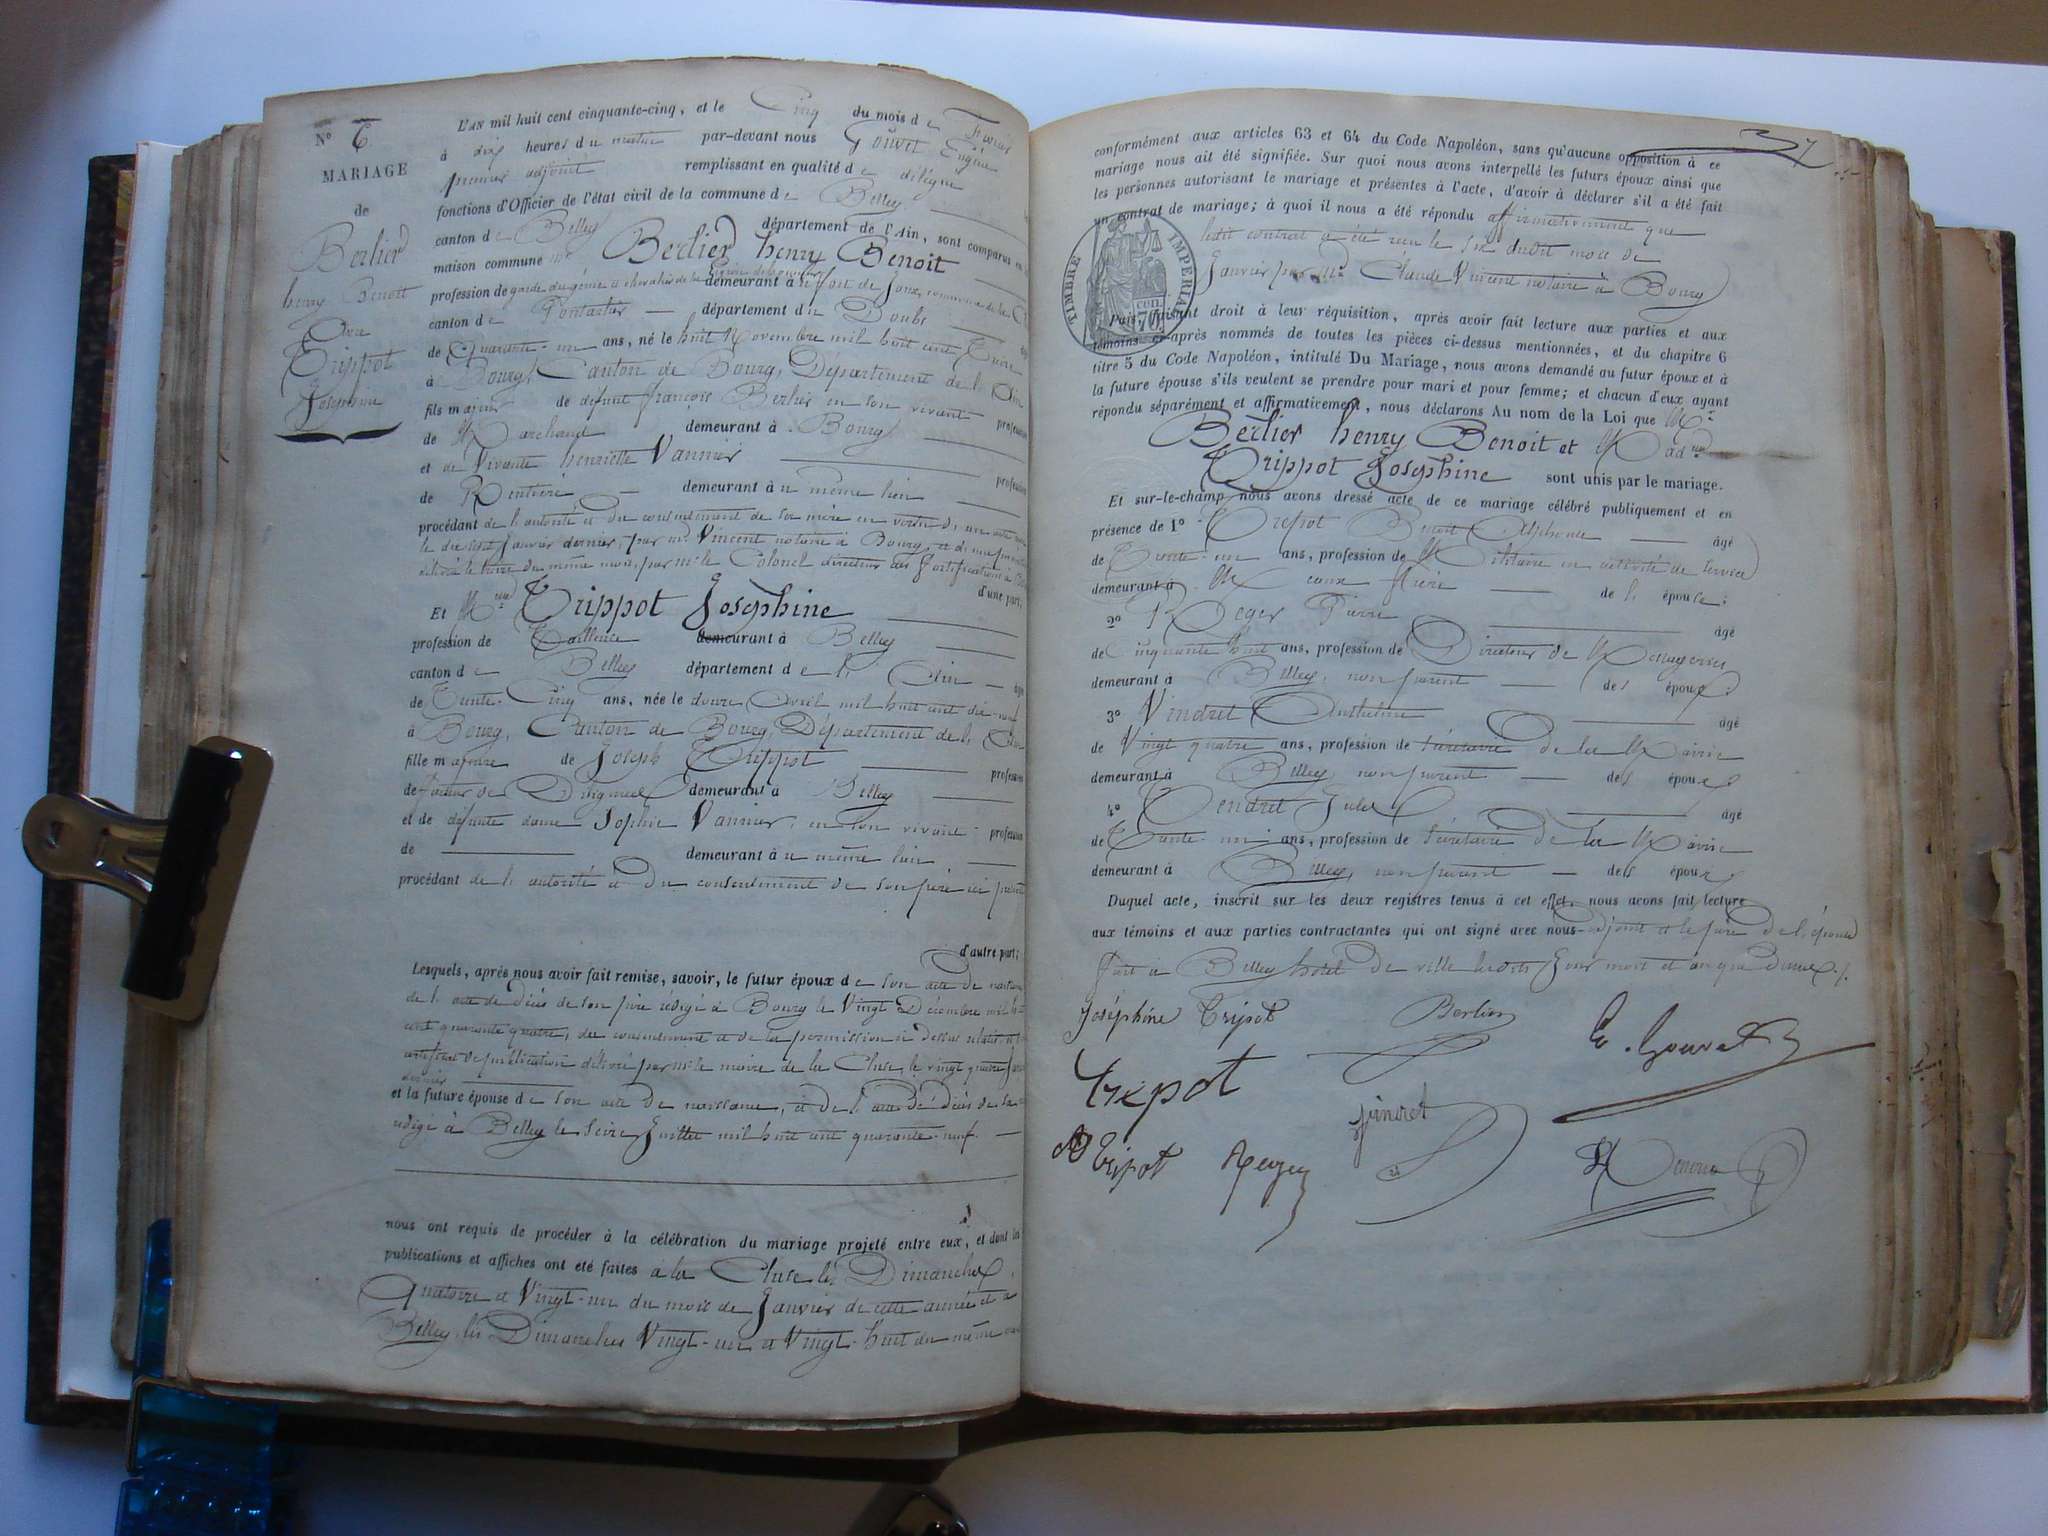 N° 6
MARIAGE
de
Berlier
henry Benoit
Et
Trippot
Josephine
L'AN mil huit cent cinquante-cinq, et le Cinq du mois de Février
à dix heures du matin par-devant nous Gouvet Eugène
premier adjoint remplissant en qualité de délégué
fonctions d'Officier de l'état civil de la commune de Belley
canton de Belley département de l'Ain, sont comparus en la
maison commune Mr Berlier henry Benoit
profession de garde du génie et chevalier de la Légion d'honneur demeurant à le fort de Joux, commune de la
canton de Pontarlier département du Doubs âgé
de Quarante-un ans, né le huit Novembre mil huit cent treize
à Bourg, Canton de Bourg, Département de l'Ain
fils majeur de défunt françois Berlier en son vivant profession
de Marchand demeurant à Bourg
et de Vivante henriette Vannier profession
de Rentière demeurant à u même lieu
procédant de l'autorité et du consentement de sa mère en vertu d'un acte
le dix huit Janvier dernier, par me Vincent notaire à Bourg, et d'une
délivrée le treize du même mois, par mr le Colonel directeur des fortifications à
d'une part;
Et Melle Trippot Josephine
profession de Tailleuse demeurant à Belley
canton de Belley département de l'Ain âgé
de Trente-Cinq ans, née le douze Avril mil huit cent dix-neuf
à Bourg, Canton de Bourg, Département de l'Ain
fille majeure de Joseph Trippot profession
de facteur de Diligences demeurant à Belley
et de défunte dame Sophie Vannier, en son vivant profession
de demeurant à u même lieu
procédant de l'autorité et du consentement de son père ici présent
d'autre part;
Lesquels, après nous avoir fait remise, savoir, le futur époux de son acte de naissance
de l'acte de décès de son père rédigé à Bourg le Vingt Décembre mil huit
cent quarante quatre, du consentement et de la permission ci dessus relatés et
certificat de publication délivré par mr le maire de la Cluse, le vingt quatre Janvier
dernier
et la future épouse de son acte de naissance, et de l'acte de décès de sa
rédigé à Belley le Seize Juillet mil huit cent quarante-neuf.
nous ont requis de procéder à la célébration du mariage projeté entre eux, et dont les
publications et affiches ont été faites à la Cluse les Dimanches
Quatorze et Vingt-un du mois de Janvier de cette année et à
Belley, les Dimanches Vingt-un et Vingt-huit du même mois
37
conformément aux articles 63 et 64 du Code Napoléon, sans qu'aucune opposition à ce
mariage nous ait été signifiée. Sur quoi nous avons interpellé les futurs époux ainsi que
les personnes autorisant le mariage et présentes à l'acte, d'avoir à déclarer s'il a été fait
un contrat de mariage; à quoi il nous a été répondu affirmativement que
ledit contrat a été reçu le six dudit mois de
Janvier par Me Claude Vincent notaire à Bourg
TIMBRE IMPERIAL
70
Puis, faisant droit à leur réquisition, après avoir fait lecture aux parties et aux
témoins ci-après nommés de toutes les pièces ci-dessus mentionnées, et du chapitre 6
titre 5 du Code Napoléon, intitulé Du Mariage, nous avons demandé au futur époux et à
la future épouse s'ils veulent se prendre pour mari et pour femme; et chacun d'eux ayant
répondu séparément et affirmativement, nous déclarons Au nom de la Loi que Mr
Berlier henry Benoit et Madlle
Trippot Josephine sont unis par le mariage.
Et sur-le-champ nous avons dressé acte de ce mariage célébré publiquement et en
présence de 1° Trepot Benoit Alphonse âgé
de Trente-un ans, profession de Militaire en activité de service
demeurant à Meaux frère de l'épouse;
2° Reger Pierre âgé
de Cinquante huit ans, profession de Directeur de Messageries
demeurant à Belley, non parent des époux;
3° Vindret Anthelme âgé
de Vingt quatre ans, profession de Secrétaire de la Mairie
demeurant à Belley, non parent des époux
4° Tendret Jules âgé
de Trente-un ans, profession de Secrétaire de la Mairie
demeurant à Belley, non parent des époux
Duquel acte, inscrit sur les deux registres tenus à cet effet, nous avons fait lecture
aux témoins et aux parties contractantes qui ont signé avec nous adjoint et le père de l'épouse
fait à Belley hotel de ville lesdits Jour mois et an que dessus.
Joséphine Tripot Berlier E. Gouvet
Trepot
Tripot Reger Vindret